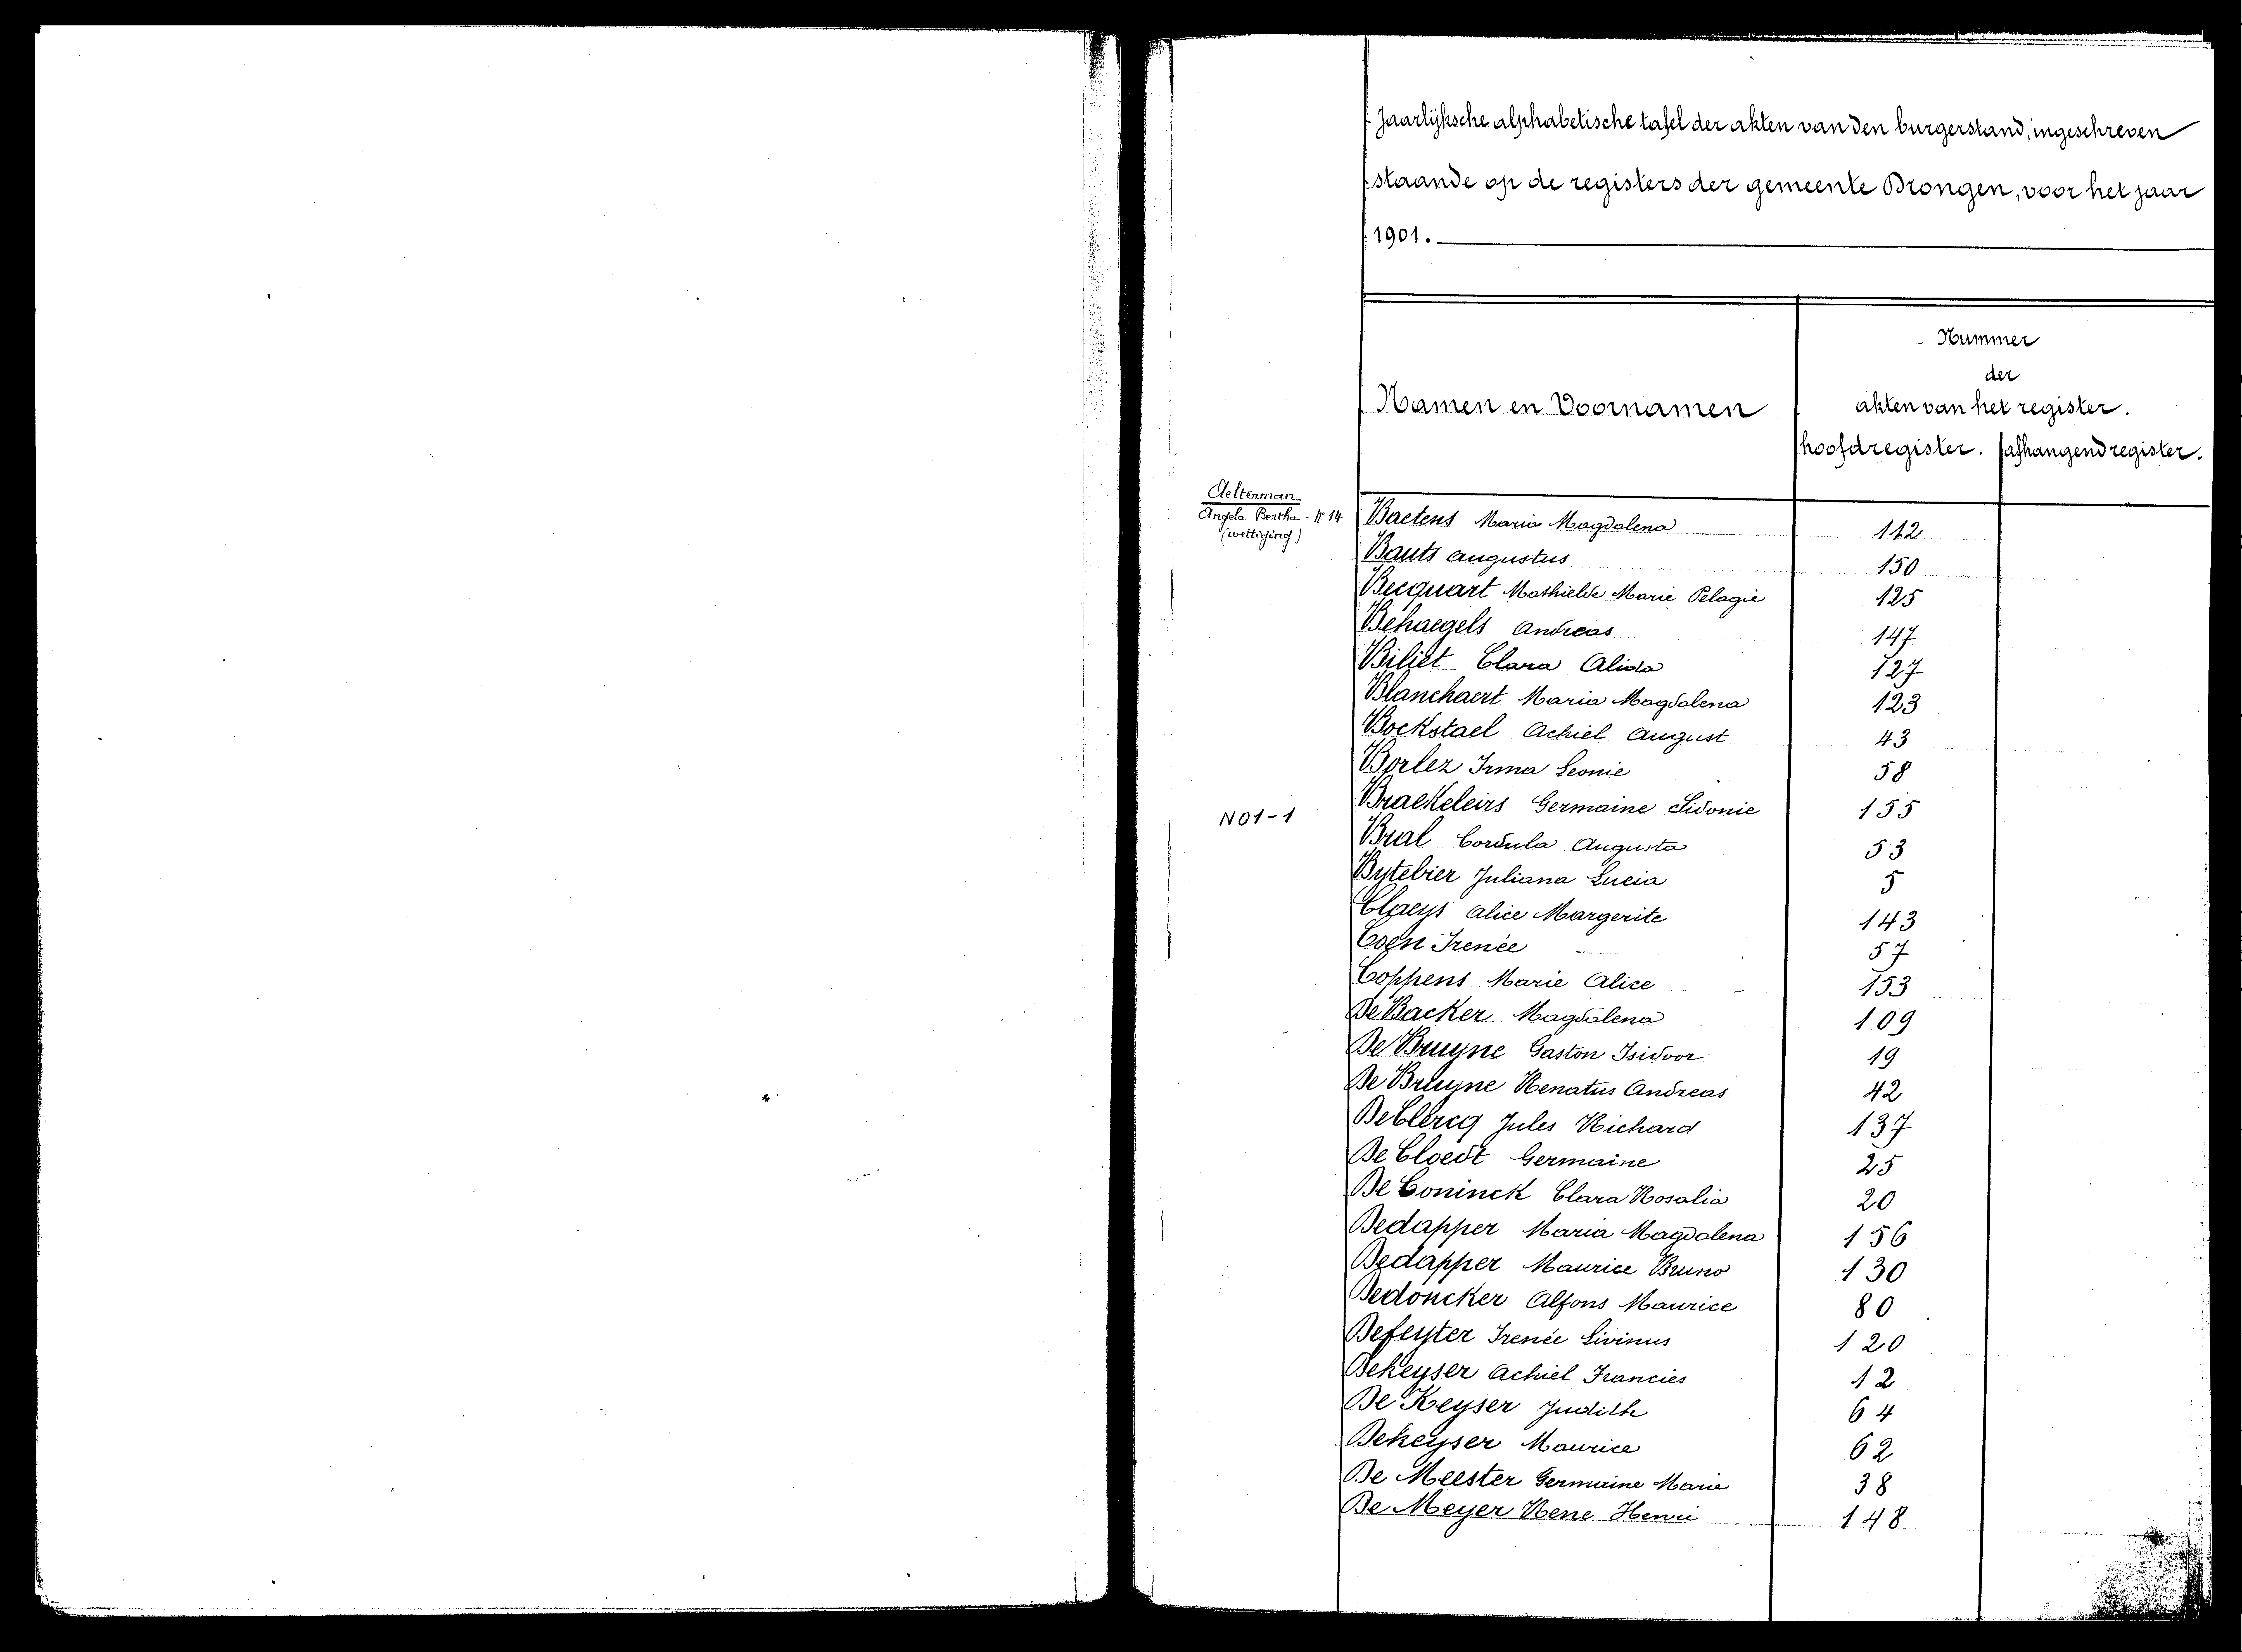 Jaarlijksche alphabetische tafel der akten van den burgerstand, ingeschreven
staande op de registers der gemeente Drongen, voor het jaar
1901.
Nummer
der
Namen en Voornamen akten van het register.
hoofdregister. afhangend register.
Aelterman
Angela Bertha - N° 14
(wettiging)
Baetens Maria Magdalena 112
Bauts Augustus 150
Becquart Mathielde Marie Pelagie 125
Behaegels Andreas 147
Biliet Clara Alida 127
Blanchaert Maria Magdalena 123
Bockstael Achiel August 43
Borlez Irma Leonie 58
N01-1
Braekeleirs Germaine Sidonie 155
Bral Cordula Augusta 53
Bytebier Juliana Lucia 5
Claeys Alice Margerite 143
Coen Irenée 57
Coppens Marie Alice 153
De Backer Magdalena 109
De Bruyne Gaston Isidoor 19
De Bruyne Renatus Andreas 42
De Clercq Jules Richard 137
De Cloedt Germaine 25
De Coninck Clara Rosalia 20
Dedapper Maria Magdalena 156
Dedapper Maurice Bruno 130
Dedoncker Alfons Maurice 80
Defeyter Irenée Livinus 120
Dekeyser Achiel Francies 12
De Keyser Judith 64
Dekeyser Maurice 62
De Meester Germaine Marie 38
De Meyer Rene Henri 148